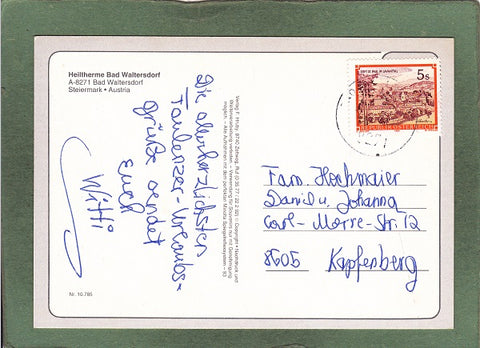 Heiltherme Bad Waltersdorf
A-8271 Bad Waltersdorf
Steiermark • Austria
Die allerherzlichsten
Faulenzer-Urlaubs-
grüße sendet
Euch
Witti
Nr. 10.785
5s
REPUBLIK ÖSTERREICH
8271
Fam. Hochmaier
Daniel u. Johanna
Carl-Morre-Str. 12
8605 Kapfenberg